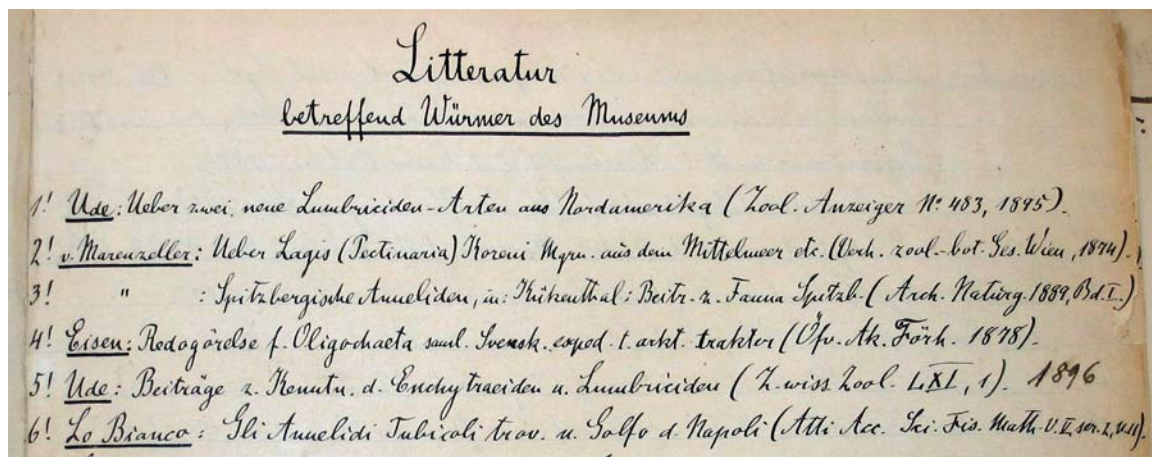 Litteratur
betreffend Würmer des Museums
1! Ude: Ueber zwei neue Lumbriciden-Arten aus Nordamerika (Zool. Anzeiger No. 483, 1895).
2! v. Marenzeller: Ueber Lagis (Pectinaria) Koreni Mgrn. aus dem Mittelmeer etc. (Verh. zool.-bot. Ges. Wien, 1874).
3! " : Spitzbergische Anneliden, in: Kükenthal: Beitr. z. Fauna Spitzb. (Arch. Naturg. 1889, Bd. I.)
4! Eisen: Redogörelse f. Oligochaeta saml. Svensk. exped. t. arkt. trakter (Öfv. Ak. Förh. 1878).
5! Ude: Beiträge z. Kenntn. d. Enchytraeiden u. Lumbriciden (Z. wiss Zool. LXI, 1). 1896
6! Lo Bianco: Gli Annelidi Tubicoli trov. n. Golfo d. Napoli (Atti Acc. Sci. Fis. Math. V. V, ser. 2,